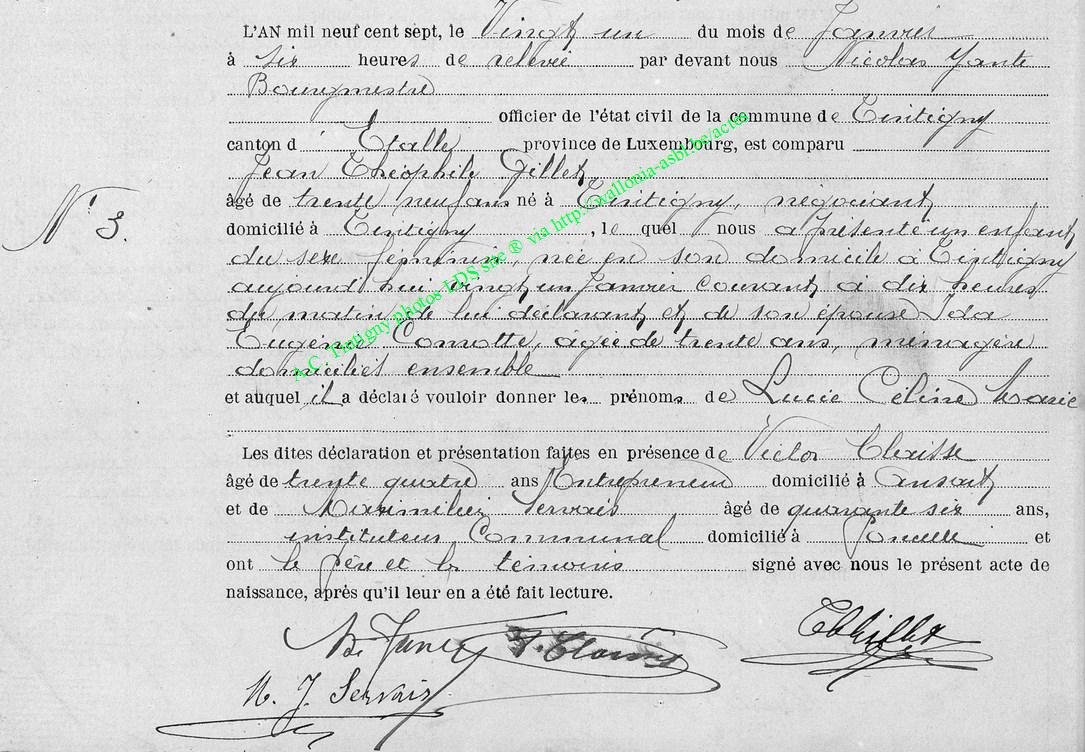 L'AN mil neuf cent sept, le Vingt un du mois de Janvier
à six heures de relevée par devant nous Nicolas
Bourgmestre
officier de l'état civil de la commune de Tintigny
canton d'Etalle province de Luxembourg, est comparu
Jean Théophile Gillet
âgé de trente neuf ans né à Tintigny, négociant
domicilié à Tintigny, lequel nous a présenté un enfant
N° 3.
du sexe feminin, née en son domicile à Tintigny
aujourd'hui vingt un Janvier courant, à dix heures
du matin, de lui déclarant et de son épouse Ida
Eugénie, agée de trente ans, ménagère
domiciliés ensemble
et auquel il a déclaré vouloir donner les prénoms de Lucie Céline Marie
Les dites déclaration et présentation faites en présence de Victor
âgé de trente quatre ans Entrepreneur domicilié à Ansart
et de Maximilien Servais âgé de quarante six ans,
instituteur Communal domicilié à et
ont le père et les témoins signé avec nous le présent acte de
naissance, après qu'il leur en a été fait lecture.
M. J. Servais
A.C. Tintigny photos LDS site ® via http://wallonia-asbl.be/actes